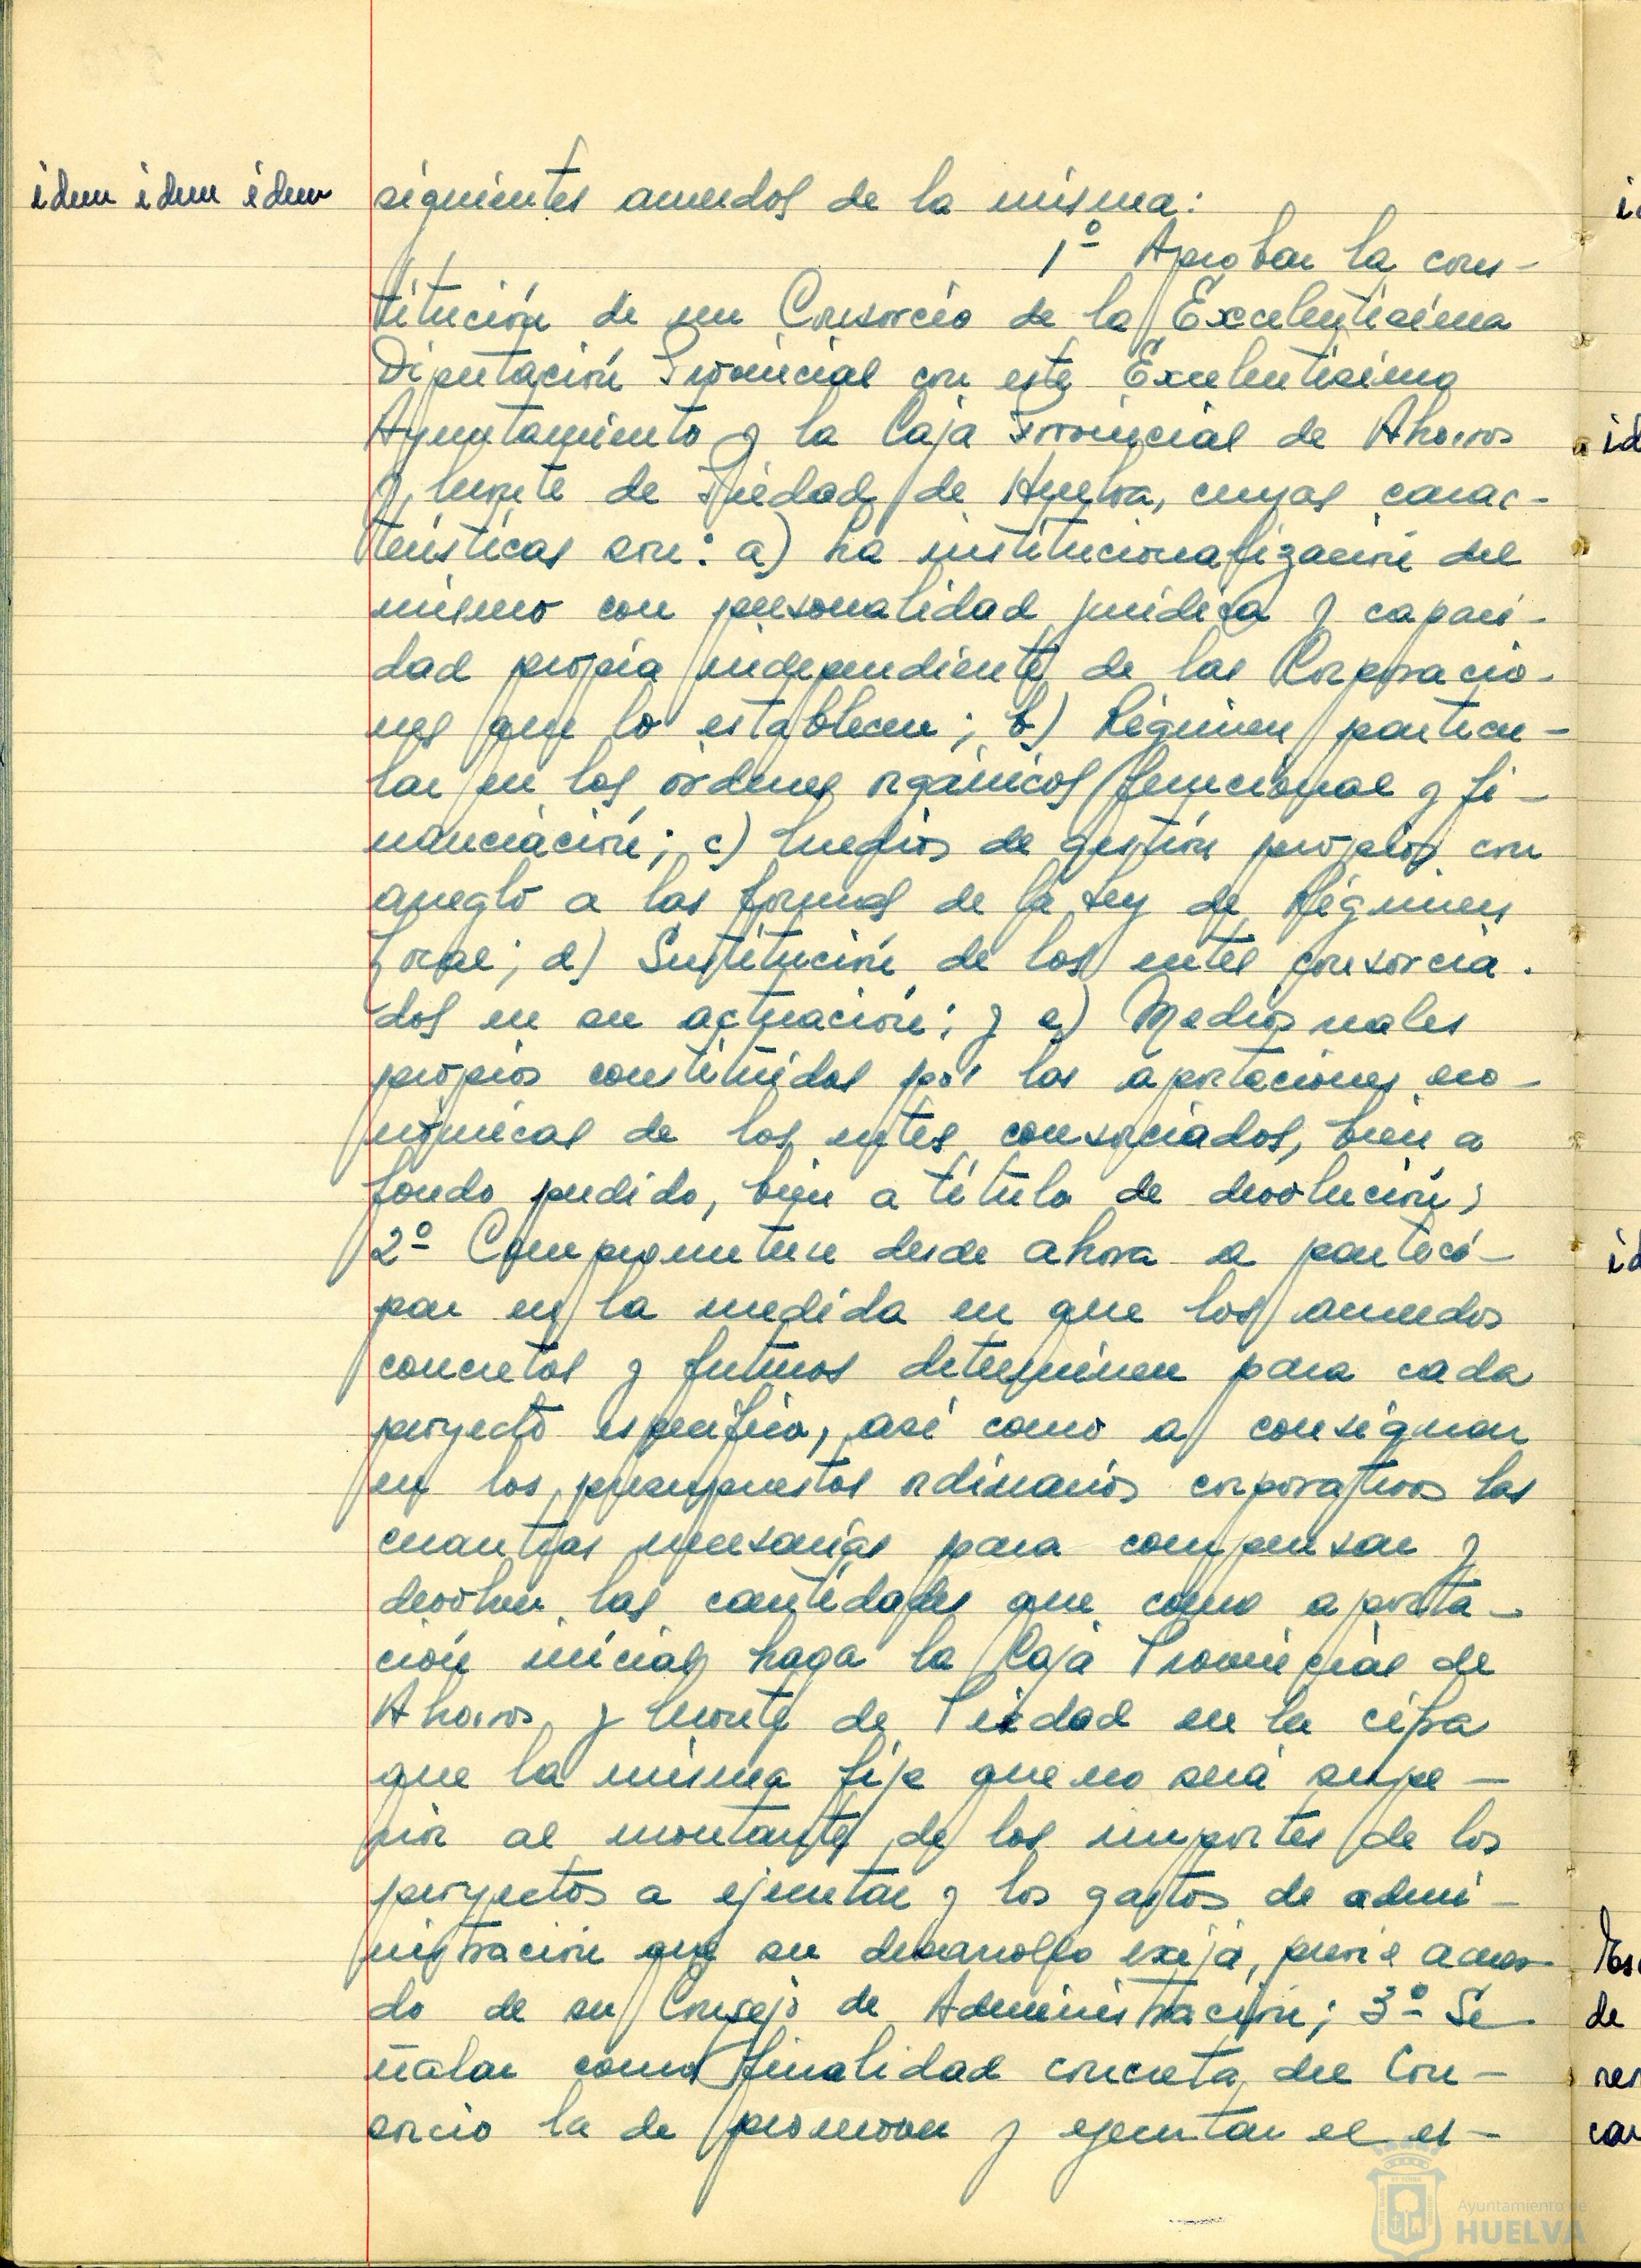 idem idem idem
siguientes acuerdos de la misma:
1º Aprobar la cons-
titución de un Consorcio de la Excelentísima
Diputación Provincial con este Excelentísimo
Ayuntamiento y la Caja Provincial de Ahorros
y Monte de Piedad de Huelva, cuyas carac-
terísticas son: a) La institucionalización del
mismo con personalidad jurídica y capaci-
dad propia independiente de las Corporacio-
nes que lo establecen; b) Régimen particu-
lar en los órdenes orgánicos funcional y fi-
nanciación; c) Medios de gestión propios con
arreglo a las formas de la Ley de Régimen
Local; d) Sustitución de los entes consorcia-
dos en su actuación; y e) Medios reales
propios constituidos por las aportaciones eco-
nómicas de los entes consorciados, bien a
fondo perdido, bien a título de devolución;
2º Comprometerse desde ahora a partici-
par en la medida en que los acuerdos
concretos y futuros determinen para cada
proyecto específico, así como a consignar
en los presupuestos ordinarios corporativos las
cuantías necesarias para compensar y
devolver las cantidades que como aporta-
ción inicial haga la Caja Provincial de
Ahorros y Monte de Piedad en la cifra
que la misma fije que no será supe-
rior al montante de los importes de los
proyectos a ejecutar y los gastos de admi-
nistración que su desarrollo exija, previo acuer-
do de su Consejo de Administración; 3º Se-
ñalar como finalidad concreta del Con-
sorcio la de promover y ejecutar el es-
id
id
de
Ayuntamiento de
HUELVA